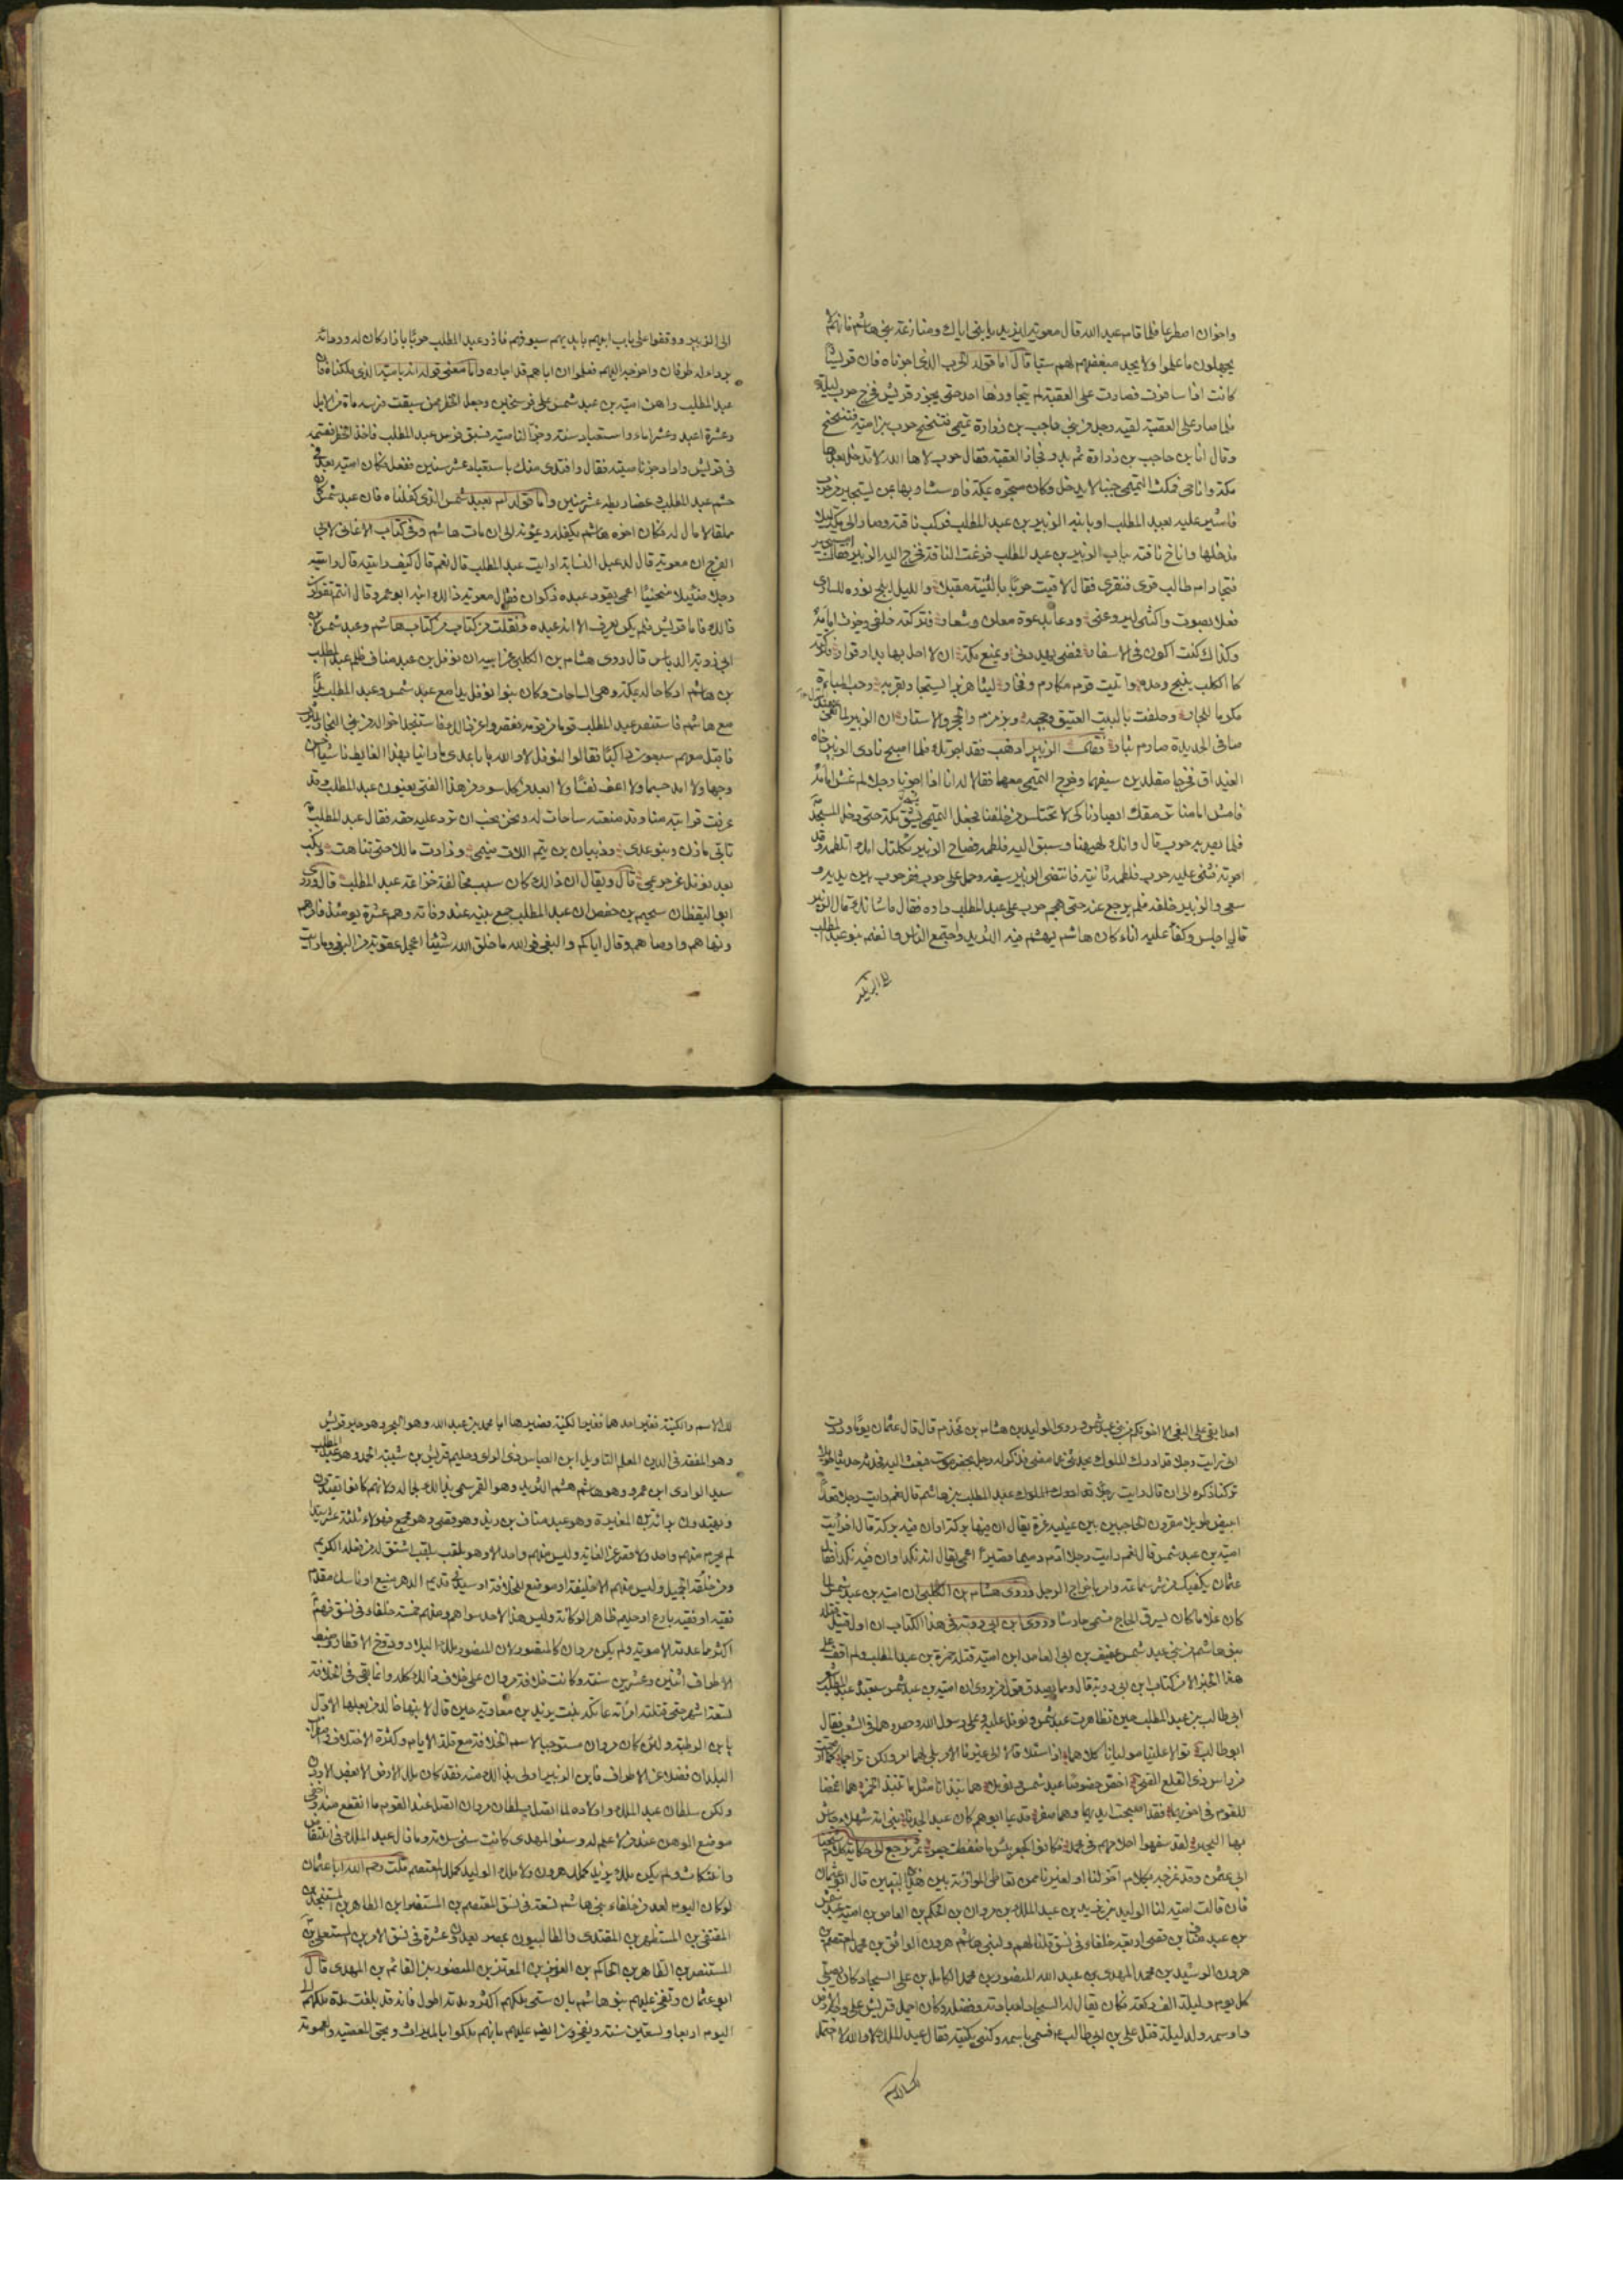 واخوان اصطرعا فلما قام عبد الله قال معوية لابنه يزيد يا بني اياك ومنازعة بني هاشم فانهم لا
يجهلون ما علموا ولا يجد مبغضهم لهم سبا قال اما قوله لحرب الذي اجرناه فان قريشا
كانت اذا سافرت فصارت على العقبة لم يتجاوزها احد حتى يجوز قريش فخرج حرب ليلة
فلما صار على العقبة لقيه رجل من بني حاجب بن زرارة تميمي فتنحنح حرب بن امية فتنحنح
وقال انا بن حاجب بن زرارة ثم بدر فجاز العقبة فقال حرب لاها الله لا تدخل بعدها
مكة وانا حي فمكث التميمي حينا لا يدخل وكان متجره بمكة فاستشار بها بمن يستجير من حرب
فاشير عليه بعبد المطلب او بابنه الزبير بن عبد المطلب فركب ناقته وصار الى مكة ليلا
فدخلها واناخ ناقته بباب الزبير بن عبد المطلب فرغت الناقة فخرج اليه الزبير فقال
مستجير ام طالب قرى فتقرى فقال لاقيت حربا بالثنية مقبلا والليل ابلج نوره للساري
فعلا بصوت واكتنى ليروعني ودعا بدعوة معلن وشعار فتركته خلفي وجزت امامه
وكذاك كنت اكون في الاسفار فمضى يهددني ويمنع مكة ان لا احل بها بدار قرار
كالكلب ينبح وحده واتيت قرم مكارم وفخار ليثا هزبرا يستجار بقربه رحب المباءة
مكرما للجار وحلفت بالبيت العتيق وحجه وبزمزم والحجر والاستار ان الزبير لمانعي
صافي الحديدة صارم بتار فقال الزبير اذهب فقد اجرتك فلما اصبح نادى الزبير اخاه
الغيداق فخرجا متقلدين سيفيهما وخرج التميمي معهما فقالا له انا اذا اجرنا رجلا لم نمش امامه
فامش امامنا نرمقك ابصارنا كي لا تختلس من خلفنا فجعل التميمي يشق مكة حتى دخل المسجد
فلما بصر به حرب قال وانك لههنا وسبق اليه فلطمه فصاح الزبير ثكلتك امك اتلطمه وقد
اجرته فثنى عليه حرب فلطمه ثانية فانتضى الزبير سيفه وحمل على حرب ففر حرب بين يديه
سعى والزبير خلفه فلم يرجع عنه حتى هجم حرب على عبد المطلب داره فقال ما شانك قال الزبير
قال اجلس وكفأ عليه اناء كان هاشم يهشم فيه الثريد واجتمع الناس وانضم بنو عبد المطلب
الى الزبير
الى الزبير ووقفوا على باب ابيهم بايديهم سيوفهم فازر عبد المطلب حربا بازار كان له ورداه
برداء له طرفان واخرجه اليهم فعلموا ان اباهم قد اجاره واما معنى قوله اندبا ميتا الذي ملكناه فان
عبد المطلب راهن امية بن عبد شمس على فرسخين وجعل الخطر ممن سبقت فرسه مائة من الابل
وعشرة اعبد وعشر اماء واستعباد سنة وجز الناصية فسبق فرس عبد المطلب فاخذ الخطر فقسمه
في قريش واراد جز ناصيته فقال وافتدي منك باستعباد عشر سنين ففعل فكان امية بعد في
حشم عبد المطلب وعضاريطه عشر سنين واما قوله لم بعبد شمس الذي كفلناه فان عبد شمس كان
مملقا لا مال له فكان اخوه هاشم يكفله ويمونه الى ان مات هاشم وفي كتاب الاغاني لابي
الفرج ان معوية قال لدغفل النسابة ارايت عبد المطلب قال نعم قال كيف رايته قال رايته
رجلا ضئيلا منحنيا اعمى يقوده عبده ذكوان فقال معوية ذالك ابنه ابو عمرو قال انتم تقولون
ذالك فاما قريش فلم يكن تعرف الا انه عبده ونقلت من كتاب من كتاب هاشم وعبد شمس لابن
ابي رؤبة الدباس قال روى هشام بن الكلبي عن ابيه ان نوفل بن عبد مناف ظلم عبد المطلب
بن هاشم اركاحا له بمكة وهي الساحات وكان بنو نوفل يدا مع عبد شمس وعبد المطلب يدا
مع هاشم فاستنصر عبد المطلب قوما من قومه فقصروا عن ذالك فاستنجد اخواله من بني النجار بيثرب
فاقبل معهم سبعون راكبا فقالوا لنوفل لا والله يا با عدي ما راينا بهذا الغايط ناشيا احسن
وجها ولا امد جسما ولا اعف نفسا ولا ابعد من كل سوء من هذا الفتى يعنون عبد المطلب وقد
عرفت قرابته منا وقد منعته ساحات له ونحن نحب ان ترد عليه حقه فقال عبد المطلب
تاتي مازن وبنو عدي وذبيان بن تيم اللات ضيمي وزادت مالك حتى تناهت ونكب
بعد نوفل عن حريمي قال ويقال ان ذالك كان سبب مخالفة خزاعة عبد المطلب قال وروى
ابو اليقظان سحيم بن حفص ان عبد المطلب جمع بنيه عند وفاته وهم عشرة يومئذ فامرهم
ونهاهم واوصاهم وقال اياكم والبغي فو الله ما خلق الله شيئا اعجل عقوبة من البغي وما رايت
احدا بقي على البغي الا اخوتكم من بني عبد شمس وروى الوليد بن هشام بن قحذم قال قال عثمان يوما وددت
اني رايت رجلا قد ادرك الملوك يحدثني عما مضى فذكر له رجل بحضرموت فبعث اليه فحدثه حديثا طويلا
تركنا ذكره الى ان قال ارايت عبد المطلب بن هاشم قال نعم رايت رجلا قعدا
ابيض طويلا مقرون الحاجبين بين عينيه غرة يقال ان فيها بركة وان فيه بركة قال افرايت
امية بن عبد شمس قال نعم رايت رجلا ادم دميما قصيرا اعمى يقال انه نكد وان فيه نكدا فقال
عثمان يكفيك من شر سماعه وامر باخراج الرجل وروى هشام بن الكلبي ان امية بن عبد شمس لما
كان غلاما كان يسرق الحاج فسمي حارسا وروى ابن ابي رؤبة في هذا الكتاب ان اول قتيل قتله
بنو هاشم من بني عبد شمس عفيف بن ابي العاص ابن امية قتله حمزة بن عبد المطلب ولم اقف على
هذا الخبر الا من كتاب بن ابي رؤبة قال ومما يصدق قول من روى ان امية بن عبد شمس استعبده عبد المطلب شعر
ابي طالب بن عبد المطلب حين تظاهرت عبد شمس ونوفل عليه وعلى رسول الله وحصروهما في الشعب فقال
ابو طالب توالا علينا موليانا كلاهما اذا سئلا قالا الى غيرنا الامر بلى لهما امر ولكن تراجما كما ارتجمت
من راس ذي القلع الفهر اخص خصوصا عبد شمس ونوفلا هما نبذانا مثل ما تنبذ الخمر هما اغمضا
للقوم في اخويهما فقد اصبحت ايديهما وهما صفر قديما ابوهم كان عبدا لجدنا بني امة شهلاء جاش
بها البحر لقد سفهوا احلامهم في محمد فكانوا كجعر بئس ما ضفطت جعر ثم نرجع الى حكاية كلام شيخنا
ابي عثمن وقد نمزجه بكلام اخر لنا او لغيرنا ممن تعاطى الموازنة بين هذين البيتين قال ابو عثمان
فان قالت امية لنا الوليد بن يزيد بن عبد الملك بن مروان بن الحكم بن العاص بن امية بن عبد شمس
بن عبد مناف بن قصي اربعة خلفاء في نسق قلنا لهم ولبني هاشم هرون الواثق بن محمد المعتصم بن
هرون الرشيد بن محمد المهدي بن عبد الله المنصور بن محمد الكامل بن علي السجاد كان يصلي
كل يوم وليلة الف ركعة فكان يقال له السجاد لعبادته وفضله وكان اجمل قريش على وجه الارض
واوسمه ولد ليلة قتل علي بن ابي طالب ع فسمي باسمه وكني بكنيته فقال عبد الملك لا والله لا احتمل
لك الاسم
لك الاسم والكنية فغير احدهما فغير الكنية فصيرها ابا محمد بن عبد الله وهو البحر وهو حبر قريش
وهو المفقه في الدين المعلم التاويل ابن العباس ذي الراى وحليم قريش بن شيبة الحمد وهو عبد المطلب
سيد الوادي ابن عمرو وهو هاشم هشم الثريد وهو القمر سمي بذالك لجماله ولانهم كانوا يقتدون
ويهتدون برائه بن المغيرة وهو عبد مناف بن زيد وهو قصي وهو مجمع فهولاء ثلثة عشر سيدا
لم يحرم منهم واحد ولا قصر عن الغاية وليس منهم واحد الا وهو ملقب بلقب اشتق له من فعله الكريم
ومن خلقه الجميل وليس منهم الا خليفة او موضع للخلافة او سيد في قديم الدهر منيع او ناسك مقدم
فقيه او فقيه بارع او حليم ظاهر الركانة وليس هذا لاحد سواهم ومنهم خمسة خلفاء في نسق فهم
اكثر مما عدته الاموية ولم يكن مروان كالمنصور لان المنصور ملك البلاد ودوخ الاقطار وضبط
الاطراف اثنتين وعشرين سنة وكانت خلافة مروان على خلاف ذالك كله وانما بقي في الخلافة
تسعة اشهر حتى قتلته امراته عاتكة بنت يزيد بن معاوية حين قال لابنها خالد من بعلها الاول
يا بن الرطبة ولئن كان مروان مستوجبا لاسم الخلافة مع قلة الايام وكثرة الاختلاف واضطراب
البلدان فضلا عن الاطراف فابن الزبير اولى بذالك منه فقد كان ملك الارض الا بعض الاردن
ولكن سلطان عبد الملك واولاده لما اتصل بسلطان مروان اتصل عند القوم ما انقطع منه واخفى
موضع الوهن عند من لا علم له وسنو المهدي كانت سني سلامة وما زال عبد الملك في انتقاض
وانتكاث ولم يكن ملك يزيد كملك هرون ولا ملك الوليد كملك المعتصم قلت رحم الله ابا عثمان
لو كان اليوم لعد من خلفاء بني هاشم تسعة في نسق المعتصم بن المستنصر بن الظاهر بن المستنجد بن
المقتفي بن المستظهر بن المقتدي والطالبيون بمصر يعدون عشرة في نسق الامر بن المستعلي بن
المستنصر بن الظاهر بن الحاكم بن العزيز بن المعتز بن المنصور بن القائم بن المهدي قال
ابو عثمان وتفخر عليهم بنو هاشم بان سني ملكهم اكثر ومدته اطول فانه قد بلغت مدة ملكهم الى
اليوم اربعا وتسعين سنة ويفخرون ايضا عليهم بانهم ملكوا بالميراث وبحق العصبة والعمومة